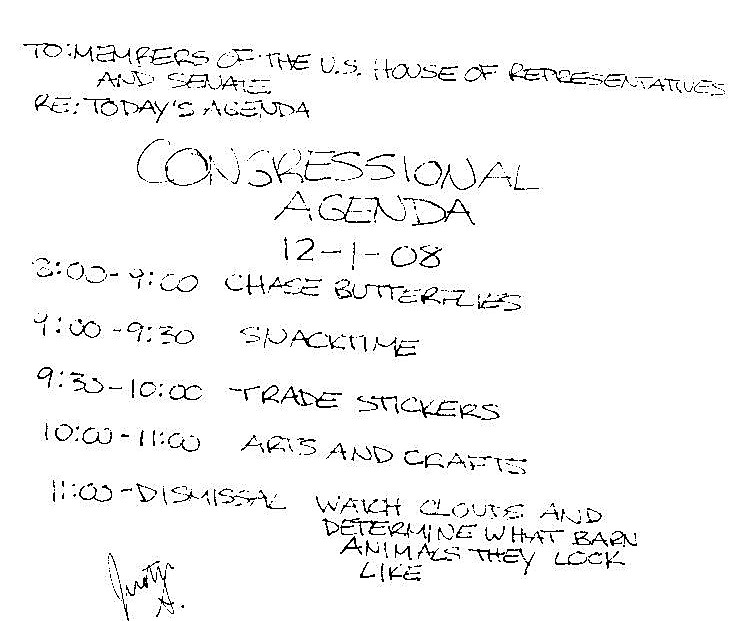 TO: MEMBERS OF THE U.S. HOUSE OF REPRESENTATIVES
AND SENATE
RE: TODAY'S AGENDA
CONGRESSIONAL
AGENDA
12-1-08
8:00-9:00 CHASE BUTTERFLIES
9:00-9:30 SNACKTIME
9:30-10:00 TRADE STICKERS
10:00-11:00 ARTS AND CRAFTS
11:00-DISMISSAL WATCH CLOUDS AND
DETERMINE WHAT BARN
ANIMALS THEY LOOK
LIKE